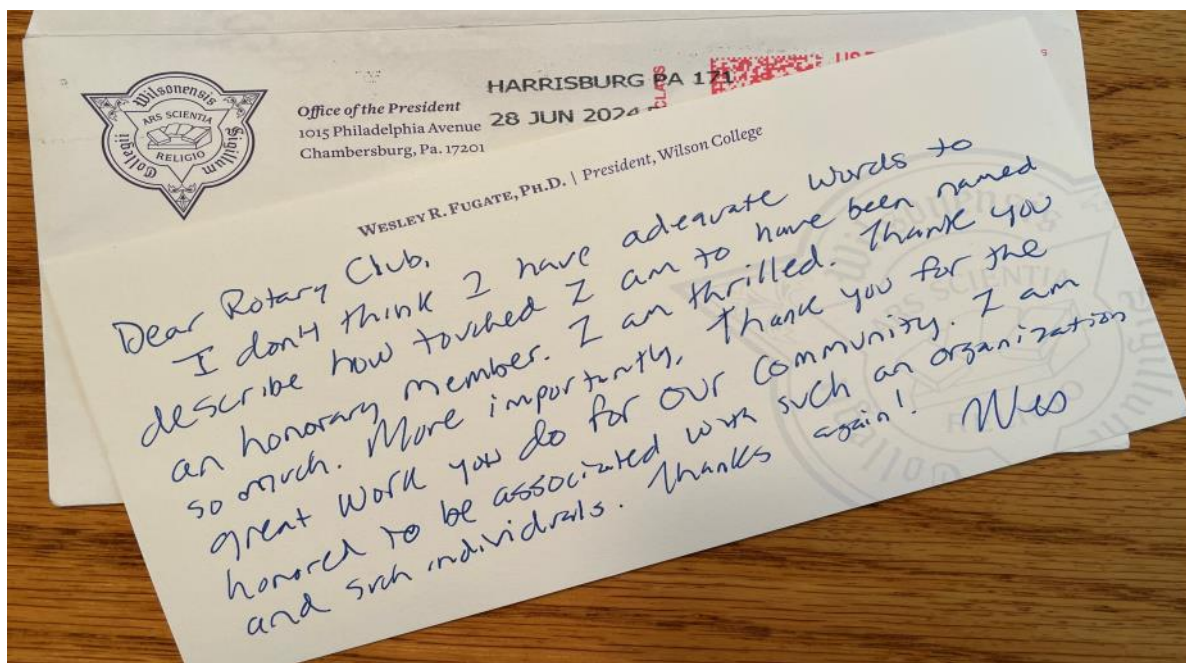 Wilsonensis
Collegii
Sigillum
ARS SCIENTIA
RELIGIO
Office of the President
1015 Philadelphia Avenue
Chambersburg, Pa. 17201
HARRISBURG PA 171
28 JUN 2024
WESLEY R. FUGATE, PH.D. | President, Wilson College
Dear Rotary Club,
I don't think I have adequate words to
describe how touched I am to have been named
an honorary member. I am thrilled. Thank you
so much. More importantly, Thank you for the
great work you do for our community. I am
honored to be associated with such an organization
and such individuals. Thanks again! Wes